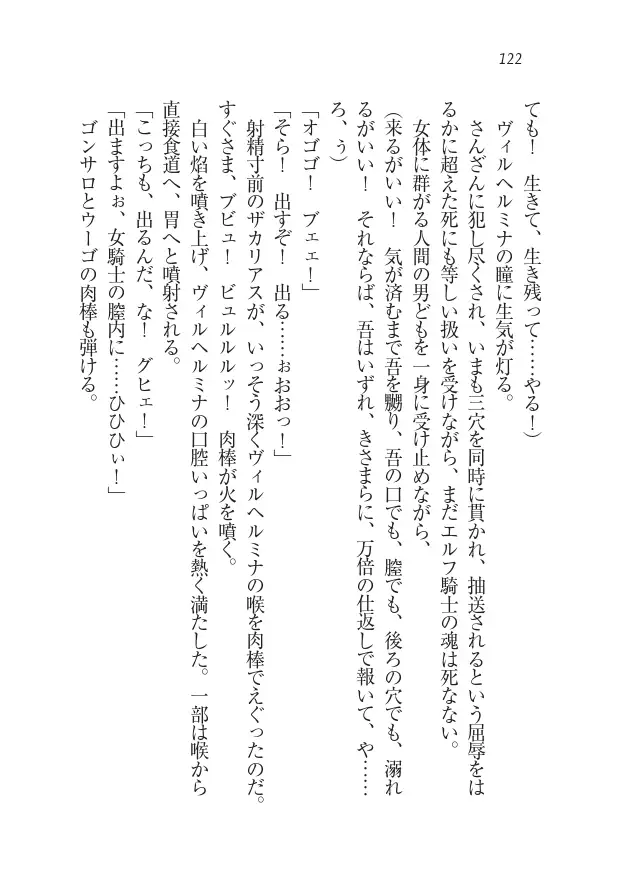 122
ても！　生きて、生き残って……やる！）
　ヴィルヘルミナの瞳に生気が灯る。
　さんざんに犯し尽くされ、いまも三穴を同時に貫かれ、抽送されるという屈辱をは
るかに超えた死にも等しい扱いを受けながら、まだエルフ騎士の魂は死なない。
　女体に群がる人間の男どもを一身に受け止めながら、
（来るがいい！　気が済むまで吾を嬲り、吾の口でも、膣でも、後ろの穴でも、溺れ
るがいい！　それならば、吾はいずれ、きさまらに、万倍の仕返しで報いて、や……
ろ、ぅ）
「オゴゴ！　ブェェ！」
「そら！　出すぞ！　出る……ぉおおっ！」
　射精寸前のザカリアスが、いっそう深くヴィルヘルミナの喉を肉棒でえぐったのだ。
すぐさま、ブビュ！　ビュルルルッ！　肉棒が火を噴く。
　白い焰を噴き上げ、ヴィルヘルミナの口腔いっぱいを熱く満たした。一部は喉から
直接食道へ、胃へと噴射される。
「こっちも、出るんだ、な！　グヒェ！」
「出ますよぉ、女騎士の膣内に……ひひひぃ！」
　ゴンサロとウーゴの肉棒も弾ける。